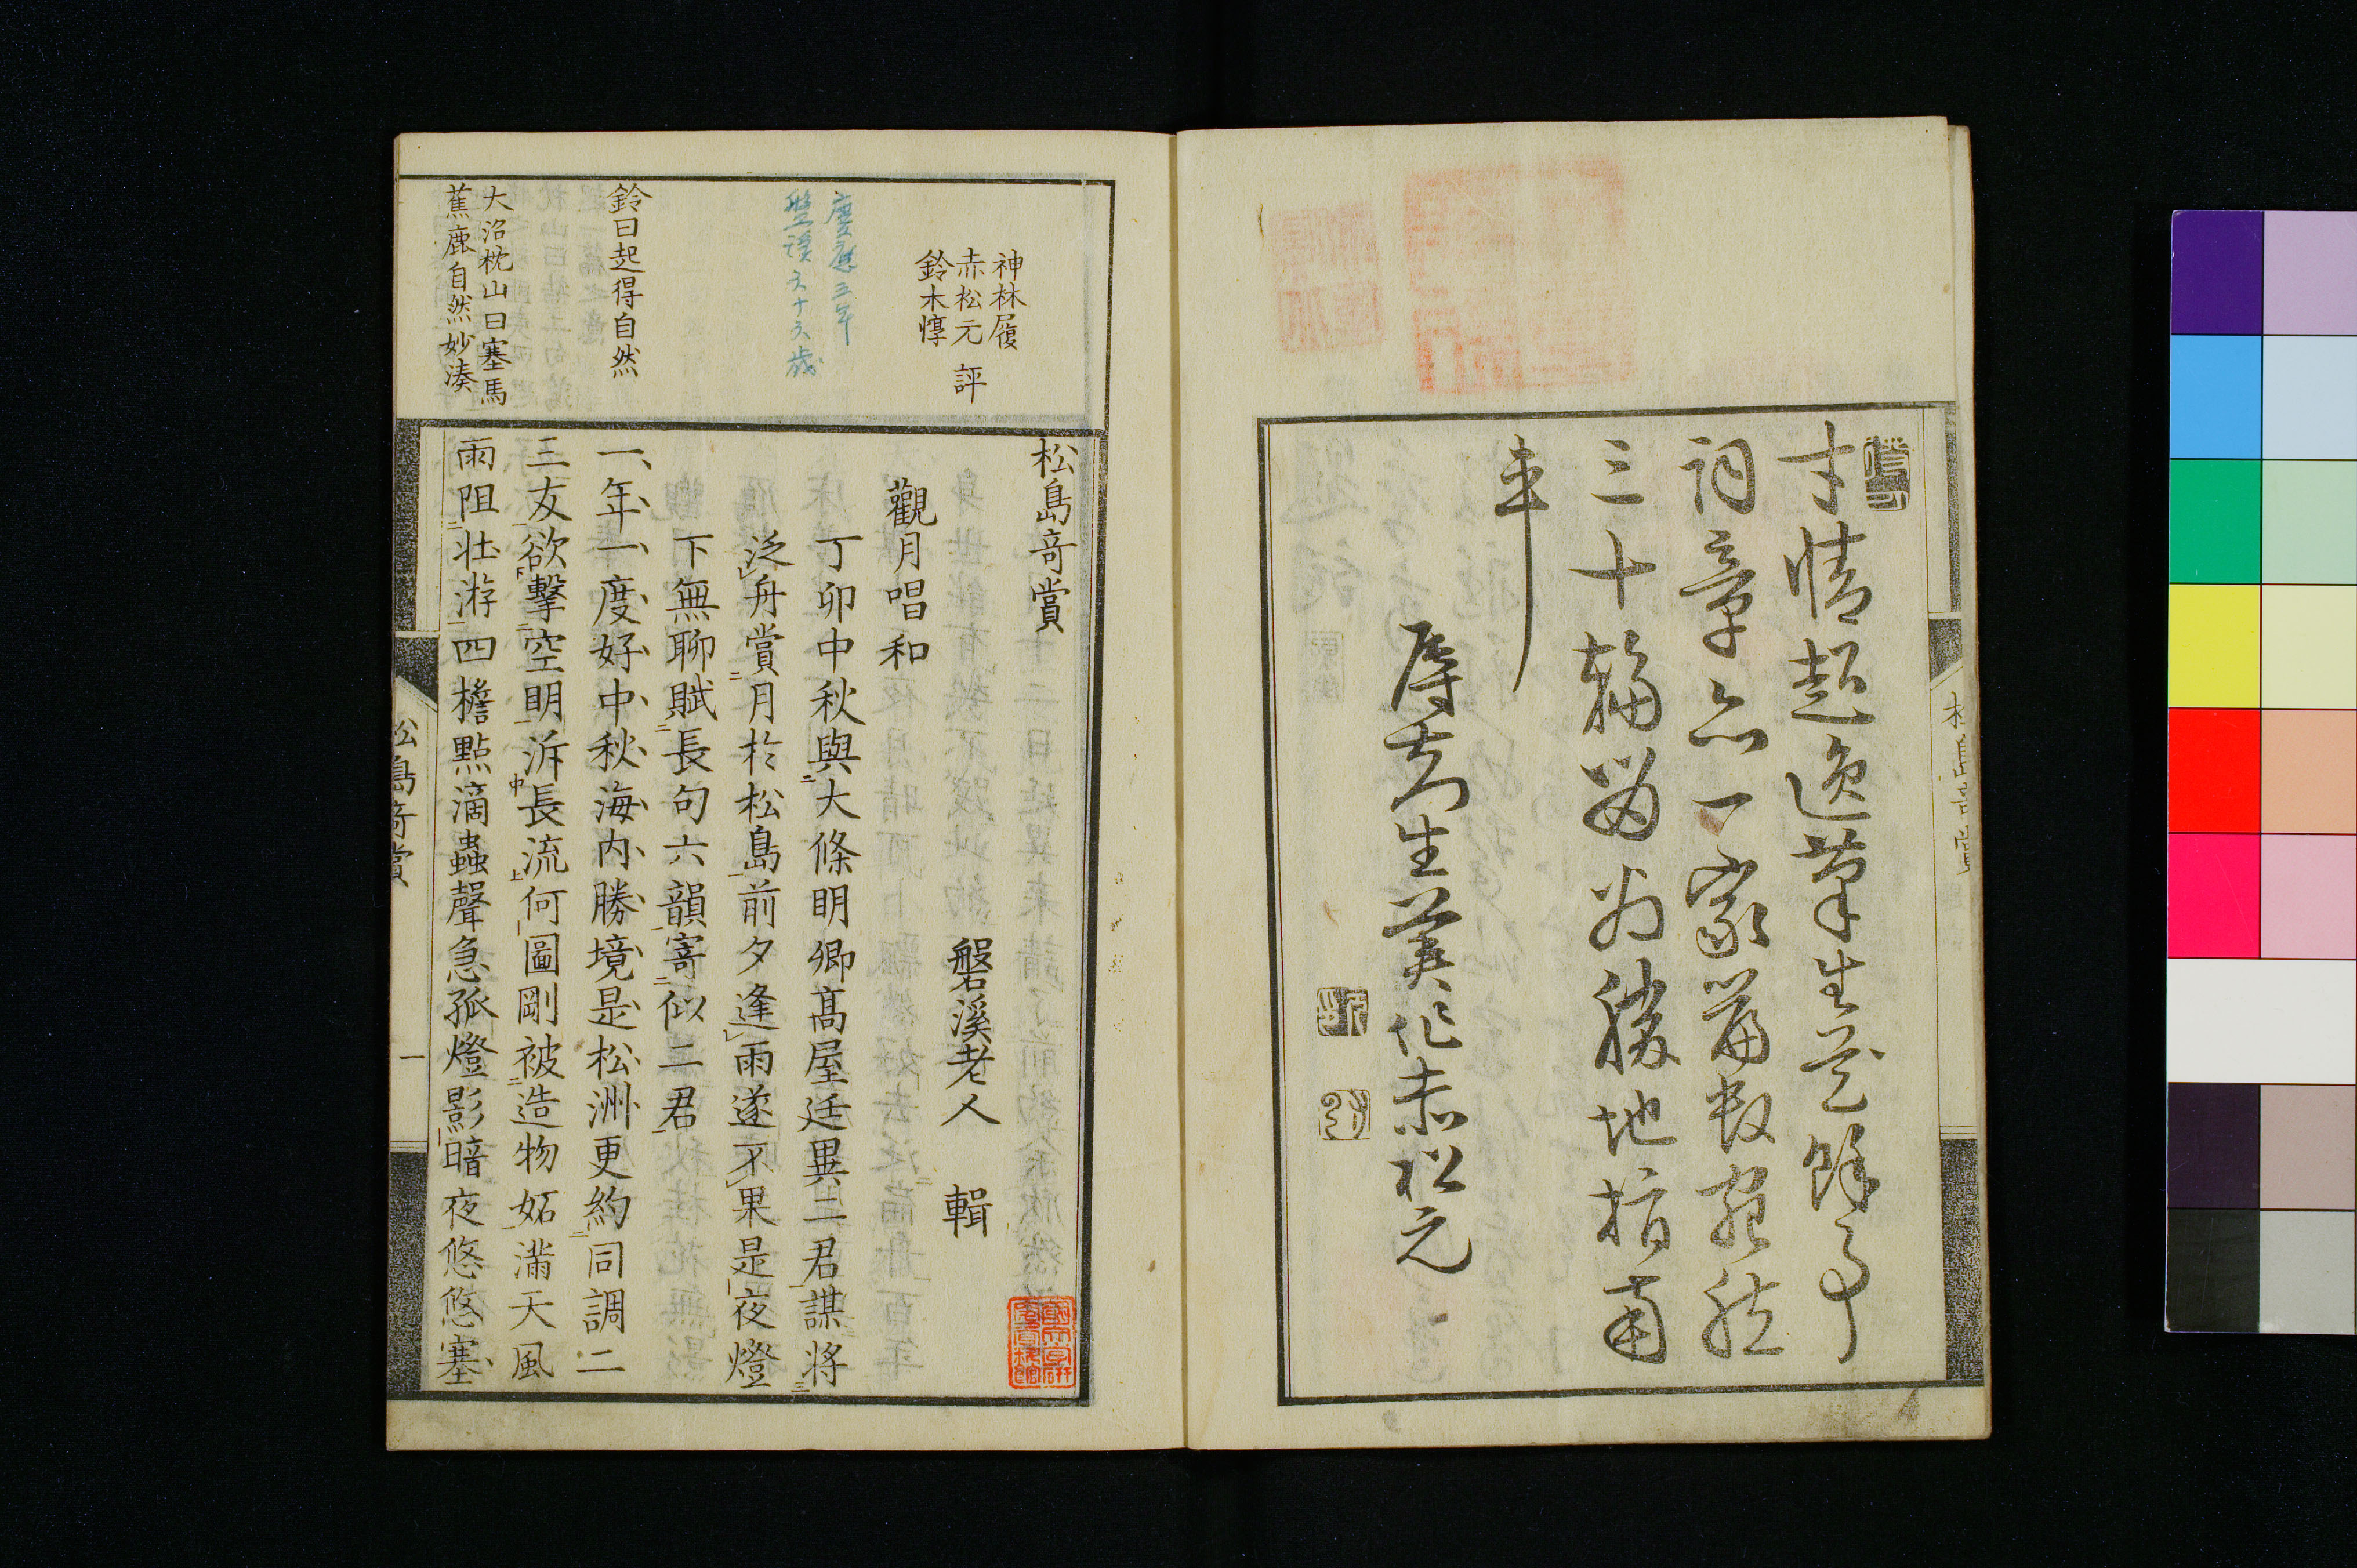 才情超逸筆生花餘事
詞章亦一家篇數宛然
三十輻留為勝地指南
車
辱知生冀作赤松元
松島奇賞
磐溪老人　輯
神林履
赤松元　評
鈴木惇
觀月唱和
慶應三年
磐溪六十六歲
丁卯中秋與大條明卿高屋廷異二君謀將
泛舟賞月於松島前夕逢雨遂不果是夜燈
下無聊賦長句六韻寄似二君
鈴曰起得自然
一年一度好中秋海內勝境是松洲更約同調二
三友欲擊空明泝長流何圖剛被造物妬滿天風
雨阻壯游四檐點滴蟲聲急孤燈影暗夜悠悠塞
大沼枕山曰塞馬
蕉鹿自然妙湊
松島奇賞
一